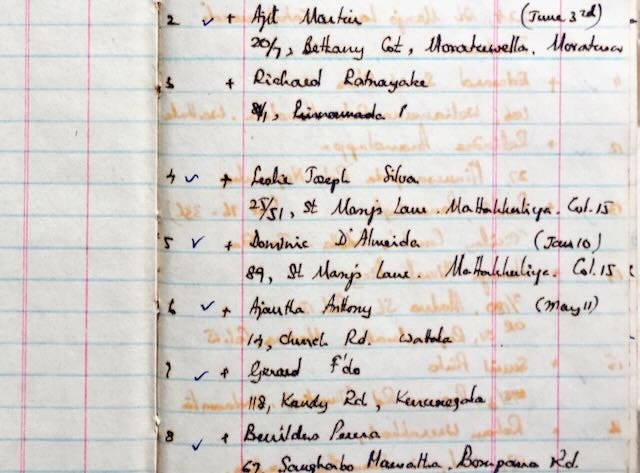 2 ✓ + Ajit Martin (June 3rd)
20/7, Bethany Cot, Moratuwella. Moratuwa
3 + Richard Ratnayake
8/1,
4 ✓ + Leslie Joseph Silva
25/51, St Mary's Lane. Mattakkuliya. Col. 15
5 ✓ + Dominic D'Almeida (Jan 10)
89, St Mary's Lane. Mattakkuliya. Col. 15
6 ✓ + Ajantha Anthony (May 11)
14, Church Rd. Wattala
7 ✓ + Gerard F'do
118, Kandy Rd, Kurunegala
8 ✓ + Perera
67 Mawatha, Rd.